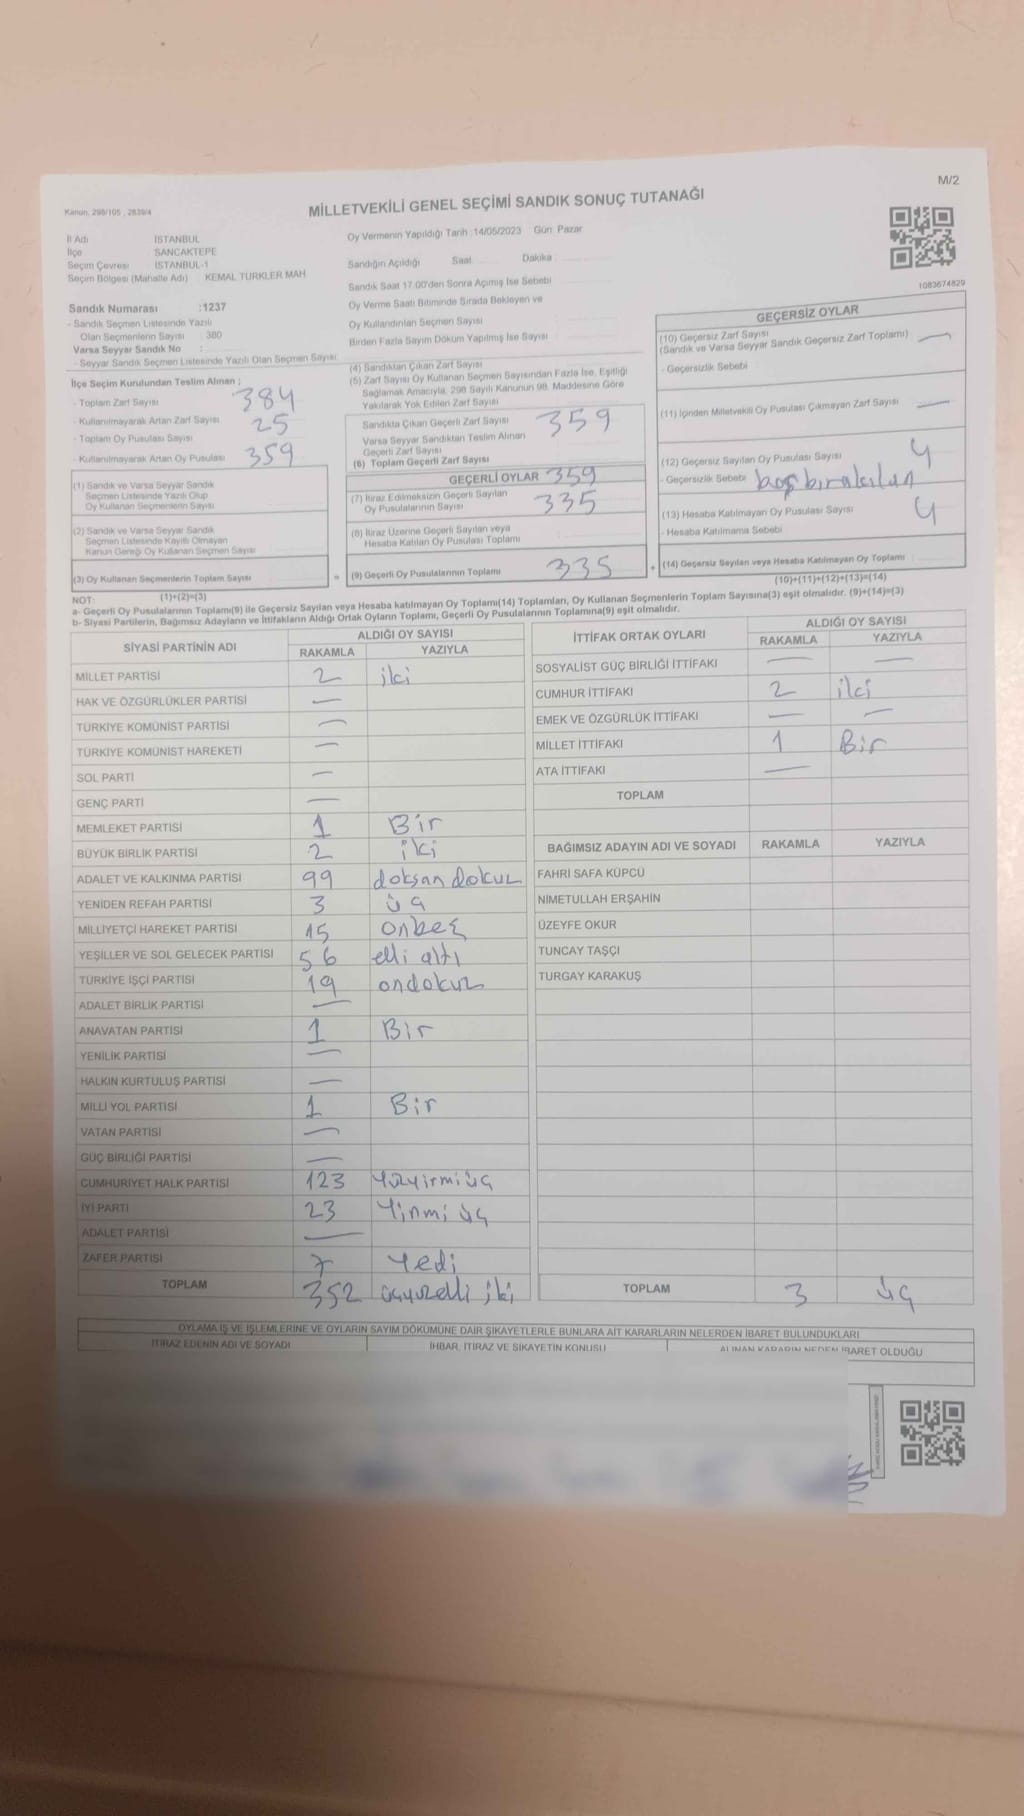 M/2
Kanun: 298/105 , 2839/4
MİLLETVEKİLİ GENEL SEÇİMİ SANDIK SONUÇ TUTANAĞI
İl Adı İSTANBUL
İlçe SANCAKTEPE
Seçim Çevresi İSTANBUL-1
Seçim Bölgesi (Mahalle Adı) : KEMAL TÜRKLER MAH.
Sandık Numarası :1237
- Sandık Seçmen Listesinde Yazılı
Olan Seçmenlerin Sayısı : 380
Varsa Seyyar Sandık No :
- Seyyar Sandık Seçmen Listesinde Yazılı Olan Seçmen Sayısı
İlçe Seçim Kurulundan Teslim Alınan ;
- Toplam Zarf Sayısı 384
- Kullanılmayarak Artan Zarf Sayısı 25
- Toplam Oy Pusulası Sayısı
- Kullanılmayarak Artan Oy Pusulası 359
(1) Sandık ve Varsa Seyyar Sandık
Seçmen Listesinde Yazılı Olup
Oy Kullanan Seçmenlerin Sayısı
(2) Sandık ve Varsa Seyyar Sandık
Seçmen Listesinde Kayıtlı Olmayan
Kanun Gereği Oy Kullanan Seçmen Sayısı
(3) Oy Kullanan Seçmenlerin Toplam Sayısı
(1)+(2)=(3)
Oy Vermenin Yapıldığı Tarih :14/05/2023 Gün: Pazar
Sandığın Açıldığı Saat Dakika :
Sandık Saat 17.00'den Sonra Açılmış İse Sebebi
Oy Verme Saati Bitiminde Sırada Bekleyen ve
Oy Kullandırılan Seçmen Sayısı :
Birden Fazla Sayım Döküm Yapılmış İse Sayısı
(4) Sandıktan Çıkan Zarf Sayısı
(5) Zarf Sayısı Oy Kullanan Seçmen Sayısından Fazla İse, Eşitliği
Sağlamak Amacıyla, 298 Sayılı Kanunun 98. Maddesine Göre
Yakılarak Yok Edilen Zarf Sayısı
Sandıkta Çıkan Geçerli Zarf Sayısı 359
Varsa Seyyar Sandıktan Teslim Alınan
Geçerli Zarf Sayısı
(6) Toplam Geçerli Zarf Sayısı
GEÇERLİ OYLAR 359
(7) İtiraz Edilmeksizin Geçerli Sayılan
Oy Pusulalarının Sayısı 335
(8) İtiraz Üzerine Geçerli Sayılan veya
Hesaba Katılan Oy Pusulası Toplamı
= (9) Geçerli Oy Pusulalarının Toplamı 335 +
1083674829
GEÇERSİZ OYLAR
(10) Geçersiz Zarf Sayısı
(Sandık ve Varsa Seyyar Sandık Geçersiz Zarf Toplamı) —
- Geçersizlik Sebebi
(11) İçinden Milletvekili Oy Pusulası Çıkmayan Zarf Sayısı —
(12) Geçersiz Sayılan Oy Pusulası Sayısı 4
- Geçersizlik Sebebi boş bırakılan
(13) Hesaba Katılmayan Oy Pusulası Sayısı 4
- Hesaba Katılmama Sebebi
(14) Geçersiz Sayılan veya Hesaba Katılmayan Oy Toplamı
(10)+(11)+(12)+(13)=(14)
NOT:
a- Geçerli Oy Pusulalarının Toplamı(9) ile Geçersiz Sayılan veya Hesaba katılmayan Oy Toplamı(14) Toplamları, Oy Kullanan Seçmenlerin Toplam Sayısına(3) eşit olmalıdır. (9)+(14)=(3)
b- Siyasi Partilerin, Bağımsız Adayların ve İttifakların Aldığı Ortak Oyların Toplamı, Geçerli Oy Pusulalarının Toplamına(9) eşit olmalıdır.
SİYASİ PARTİNİN ADI ALDIĞI OY SAYISI
RAKAMLA YAZIYLA
MİLLET PARTİSİ 2 iki
HAK VE ÖZGÜRLÜKLER PARTİSİ —
TÜRKİYE KOMÜNİST PARTİSİ —
TÜRKİYE KOMÜNİST HAREKETİ —
SOL PARTİ —
GENÇ PARTİ —
MEMLEKET PARTİSİ 1 Bir
BÜYÜK BİRLİK PARTİSİ 2 iki
ADALET VE KALKINMA PARTİSİ 99 doksan dokuz
YENİDEN REFAH PARTİSİ 3 üç
MİLLİYETÇİ HAREKET PARTİSİ 15 onbeş
YEŞİLLER VE SOL GELECEK PARTİSİ 56 elli altı
TÜRKİYE İŞÇİ PARTİSİ 19 ondokuz
ADALET BİRLİK PARTİSİ —
ANAVATAN PARTİSİ 1 Bir
YENİLİK PARTİSİ —
HALKIN KURTULUŞ PARTİSİ —
MİLLİ YOL PARTİSİ 1 Bir
VATAN PARTİSİ —
GÜÇ BİRLİĞİ PARTİSİ —
CUMHURİYET HALK PARTİSİ 123 Yüzyirmiüç
İYİ PARTİ 23 Yirmi üç
ADALET PARTİSİ —
ZAFER PARTİSİ 7 Yedi
TOPLAM 352 üçyüzelli iki
İTTİFAK ORTAK OYLARI ALDIĞI OY SAYISI
RAKAMLA YAZIYLA
SOSYALİST GÜÇ BİRLİĞİ İTTİFAKI — —
CUMHUR İTTİFAKI 2 iki
EMEK VE ÖZGÜRLÜK İTTİFAKI — —
MİLLET İTTİFAKI 1 Bir
ATA İTTİFAKI —
TOPLAM
BAĞIMSIZ ADAYIN ADI VE SOYADI RAKAMLA YAZIYLA
FAHRİ SAFA KÜPCÜ
NİMETULLAH ERŞAHİN
ÜZEYFE OKUR
TUNCAY TAŞÇI
TURGAY KARAKUŞ
TOPLAM 3 üç
OYLAMA İŞ VE İŞLEMLERİNE VE OYLARIN SAYIM DÖKÜMÜNE DAİR ŞİKAYETLERLE BUNLARA AİT KARARLARIN NELERDEN İBARET BULUNDUKLARI
İTİRAZ EDENİN ADI VE SOYADI İHBAR, İTİRAZ VE ŞİKAYETİN KONUSU ALINAN KARARIN NEDEN İBARET OLDUĞU